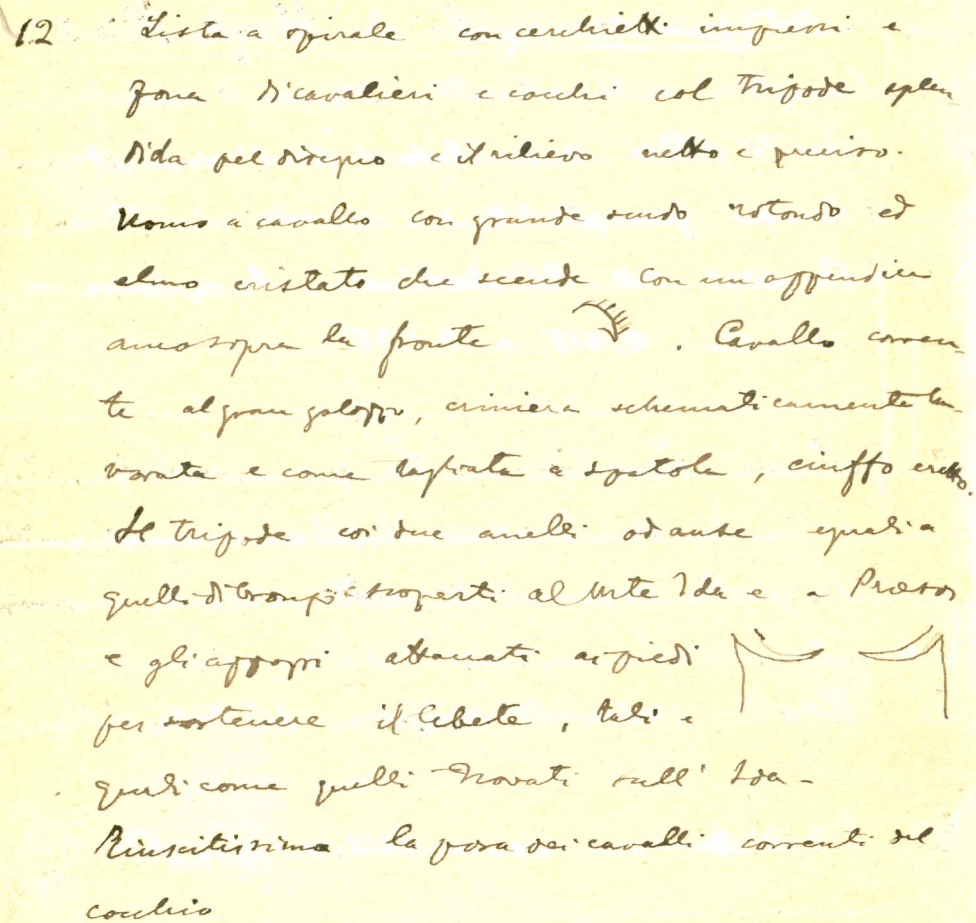 12 Lista a spirale con cerchietti impressi e
zona di cavalieri e cocchi col tripode splen
dida pel disegno e il rilievo netto e preciso.
Uomo a cavallo con grande scudo rotondo ed
elmo cristato che scende con un appendice
anco sopra la fronte . Cavallo corren-
te al gran galoppo, criniera schematicamente la-
vorata e come tagliata a spatola, ciuffo eretto.
Il tripode coi due anelli od anse eguali a
quelli di bronzo scoperti al Mte Ida e a Praesos
e gli appoggi attaccati ai piedi
per sostenere il lebete, tali e
quali come quelli trovati sull' Ida -
Riuscitissima la posa dei cavalli correnti del
cocchio